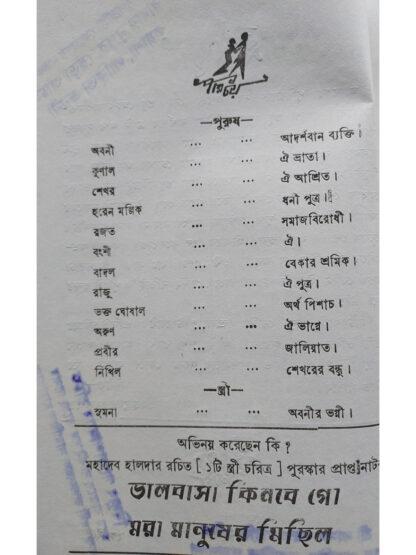 পরিচয়
—পুরুষ—
অবনী ... ... আদর্শবান ব্যক্তি।
কুণাল ... ... ঐ ভ্রাতা।
শেখর ... ... ঐ আশ্রিত।
হরেন মল্লিক ... ... ধনী পুত্র।
রজত ... ... সমাজবিরোধী।
বংশী ... ... ঐ।
বাদল ... ... বেকার শ্রমিক।
রাজু ... ... ঐ পুত্র।
ভক্ত ঘোষাল ... ... অর্থ পিশাচ।
অরুণ ... ... ঐ ভাগ্নে।
প্রবীর ... ... জালিয়াত।
নিখিল ... ... শেখরের বন্ধু।
—স্ত্রী—
সুমনা ... ... অবনীর ভগ্নী।
অভিনয় করেছেন কি ?
মহাদেব হালদার রচিত [ ১টি স্ত্রী চরিত্র ] পুরস্কার প্রাপ্ত নাট
ভালবাসা কিনবে গো
মরা মানুষের মিছিল